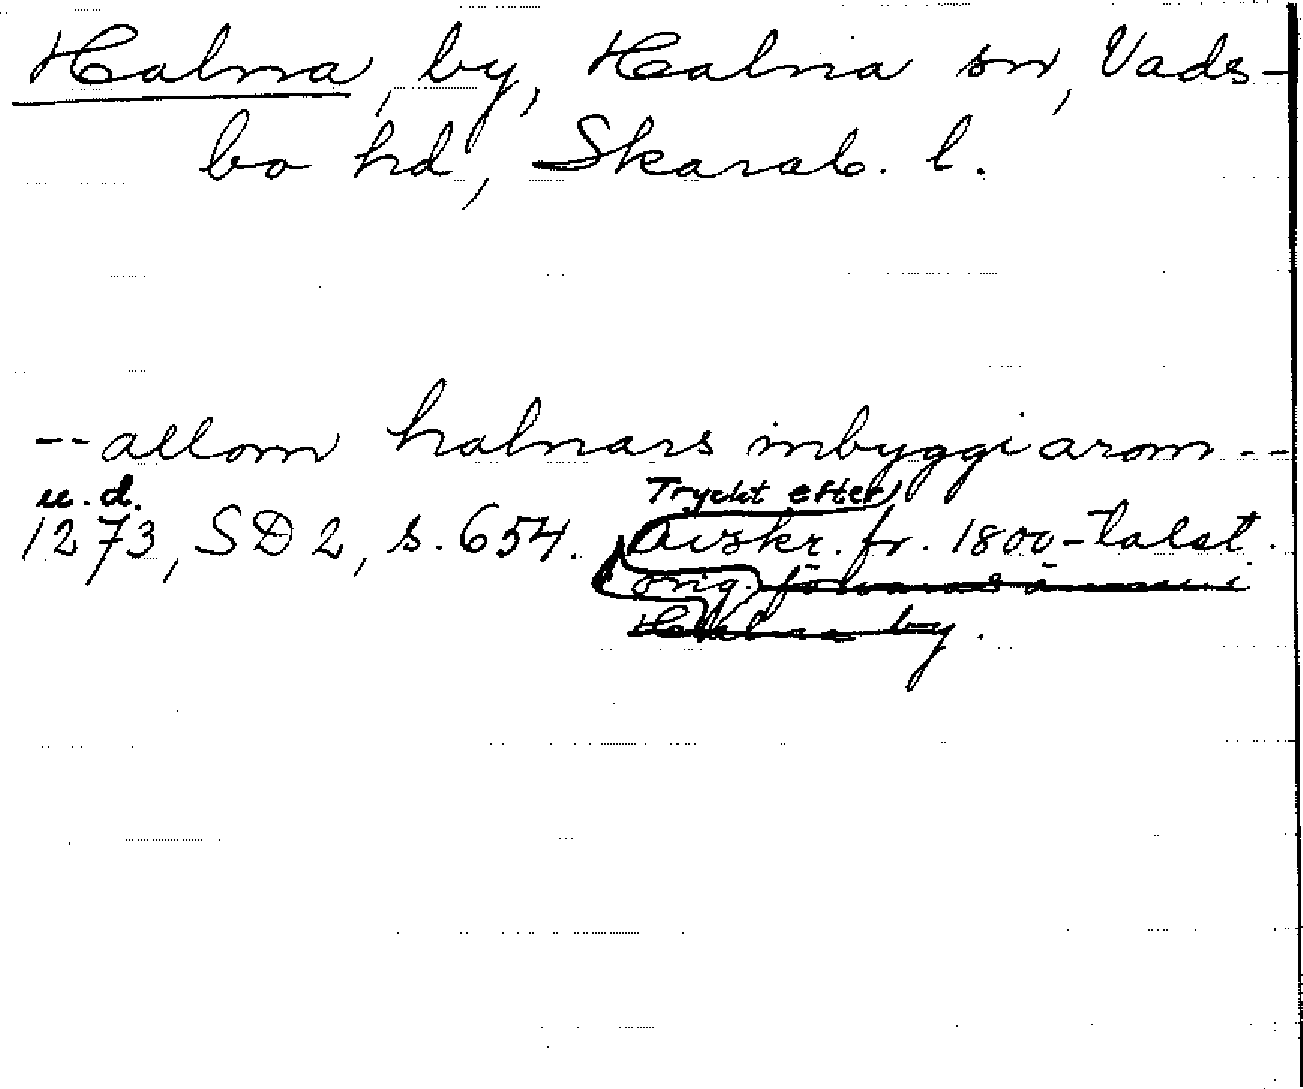 Halna, by, Halna sn, Vads-
bo hd, Skarab. l.
--allom halnars inbyggiarom--
u.d. Tryckt efter
1273, SD 2, s. 654. Avskr. fr. 1800-talet.
orig. förvaras ännu i
Halna by.